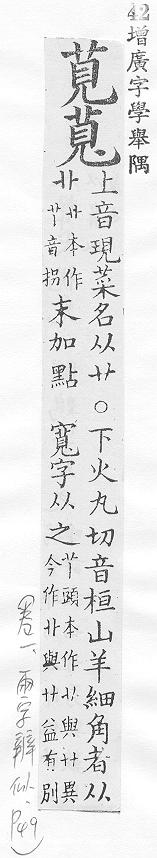 42 增廣字學舉隅
莧萈
上音現菜名从艹○下火丸切音桓山羊細角者从
末加點 寬字从之
頭本作
與艹異
今作
與艹益有別
卷一、兩字辨似、P49